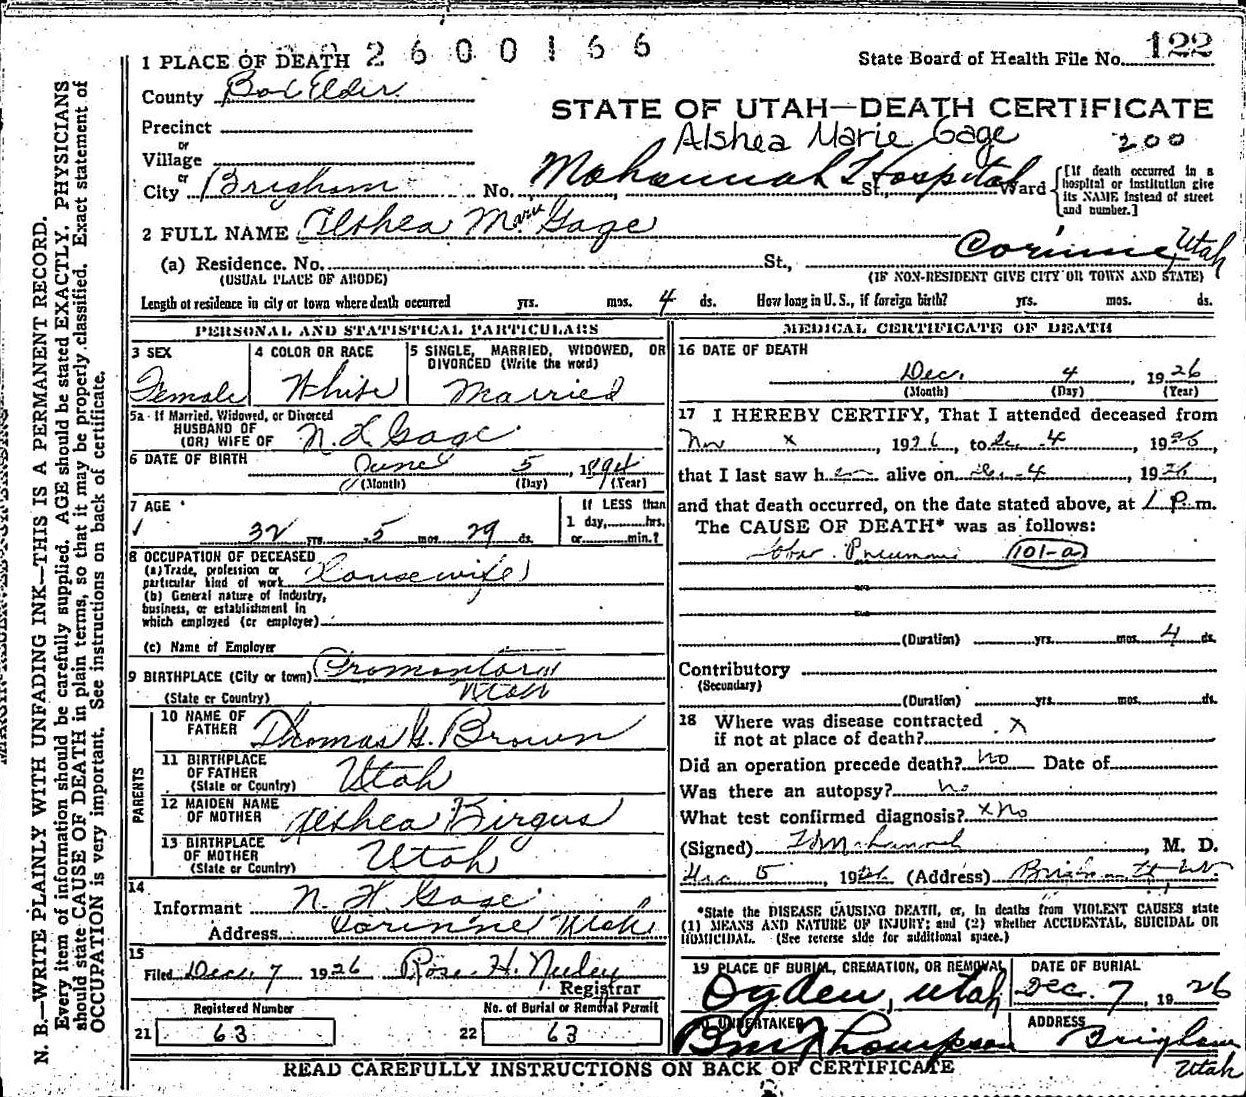 2600166
State Board of Health File No. 122
1 PLACE OF DEATH
County Box Elder
STATE OF UTAH—DEATH CERTIFICATE
Precinct
Alshea Marie Gage
200
or
Village
or
City Brigham No. Hospital St., Ward
[If death occurred in a hospital or institution give its NAME instead of street and number.]
2 FULL NAME Alshea Marie Gage
(a) Residence. No. St., Corinne, Utah
(USUAL PLACE OF ABODE) (IF NON-RESIDENT GIVE CITY OR TOWN AND STATE)
Length of residence in city or town where death occurred yrs. mos. 4 ds. How long in U. S., if foreign birth? yrs. mos. ds.
PERSONAL AND STATISTICAL PARTICULARS
3 SEX 4 COLOR OR RACE 5 SINGLE, MARRIED, WIDOWED, OR DIVORCED (Write the word)
Female White Married
5a If Married, Widowed, or Divorced
HUSBAND OF
(OR) WIFE OF Gage
6 DATE OF BIRTH June 5, 1894
(Month) (Day) (Year)
7 AGE
32 yrs. 5 mos. 29 ds.
If LESS than
1 day, hrs.
or min.?
8 OCCUPATION OF DECEASED
(a) Trade, profession or
particular kind of work Housewife
(b) General nature of industry,
business, or establishment in
which employed (or employer)
(c) Name of Employer
9 BIRTHPLACE (City or town) Promontory
(State or Country) Utah
PARENTS
10 NAME OF FATHER Thomas G. Brown
11 BIRTHPLACE OF FATHER
(State or Country) Utah
12 MAIDEN NAME OF MOTHER Alshea Kirgus
13 BIRTHPLACE OF MOTHER
(State or Country) Utah
14
Informant N. H. Gage
Address Corinne Utah
15
Filed Dec. 7 1926 Rose H. Neeley
Registrar
Registered Number No. of Burial or Removal Permit
21 63 22 63
MEDICAL CERTIFICATE OF DEATH
16 DATE OF DEATH
Dec. 4, 1926
(Month) (Day) (Year)
17 I HEREBY CERTIFY, That I attended deceased from
Nov x, 1926, to Dec. 4 1926,
that I last saw her alive on Dec. 4, 1926,
and that death occurred, on the date stated above, at 1 P.m.
The CAUSE OF DEATH* was as follows:
Lobar Pneumonia 101-a
(Duration) yrs. mos. 4 ds.
Contributory
(Secondary)
(Duration) yrs. mos. ds.
18 Where was disease contracted
if not at place of death? x
Did an operation precede death? no Date of
Was there an autopsy? no
What test confirmed diagnosis? x no
(Signed), M. D.
Dec 5, 1926 (Address) Brigham
*State the DISEASE CAUSING DEATH, or, in deaths from VIOLENT CAUSES state
(1) MEANS AND NATURE OF INJURY; and (2) whether ACCIDENTAL, SUICIDAL OR
HOMICIDAL. (See reverse side for additional space.)
19 PLACE OF BURIAL, CREMATION, OR REMOVAL DATE OF BURIAL
Ogden, Utah Dec. 7, 1926
20 UNDERTAKER ADDRESS
Thompson Brigham
Utah
READ CAREFULLY INSTRUCTIONS ON BACK OF CERTIFICATE
N. B.—WRITE PLAINLY WITH UNFADING INK—THIS IS A PERMANENT RECORD.
Every item of information should be carefully supplied. AGE should be stated EXACTLY. PHYSICIANS
should state CAUSE OF DEATH in plain terms, so that it may be properly classified. Exact statement of
OCCUPATION is very important. See instructions on back of certificate.